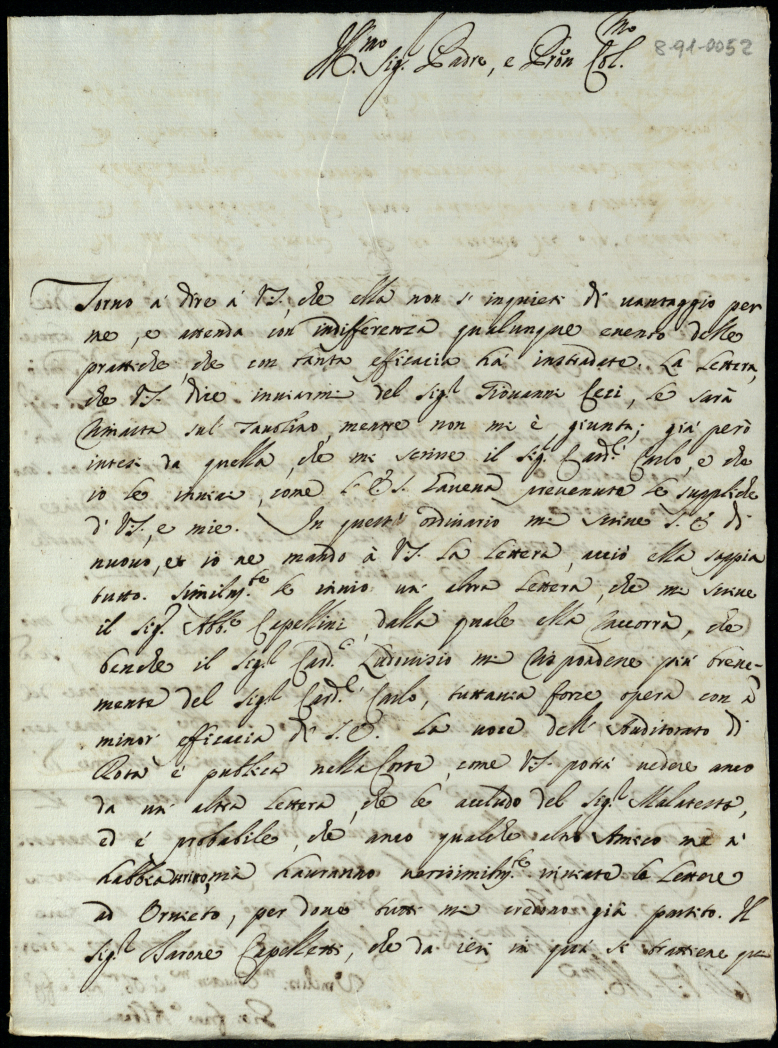 Ill.mo Sig.r Padre, e Pron Col.mo
8-91-0052
Torno à dire à V.S. che ella non si inquieti di vantaggio per
me, e attenda con indifferenza qualunque evento delle
prattiche che con tanta efficacia hà instradate. La Lettera,
che V.S. dice inviarmi del Sig.r Giovanni Ceci, se sarà
rimasta sul tavolino, mentre non mi è giunta; già però
intesi da quella, che mi scrive il Sig.r Card.l Carlo, e che
io le inviai, come S.E. haveva prevenute le suppliche
di V.S., e mie. In quest' ordinario mi scrive S.E. di
nuovo, et io ne mando à V.S. la Lettera, acciò ella sappia
tutto. Similm.te le invio un' altra Lettera, che mi scrive
il Sig.r Abb.e Capellini, dalla quale ella raccorrà, che
benche il Sig.r Card.l Ludovisio mi rispondesse più breve-
mente del Sig.r Card.l Carlo, tuttavia forze opera con
minor efficacia di S.E. La voce dell' Auditorato di
Rota è publica nella Corte, come V.S. potrà vedere anco
da un' altra Lettera, che le accludo del Sig.r Malatesta,
ed è probabile, che anco qualche altro Amico me n'
habbia scritto, ma hauranno verisimilm.te inviate le Lettere
ad Orvieto, per dove tutti mi credono già partito. Il
Sig.r Barone Capelletti, che da ieri in quà si trattiene qui